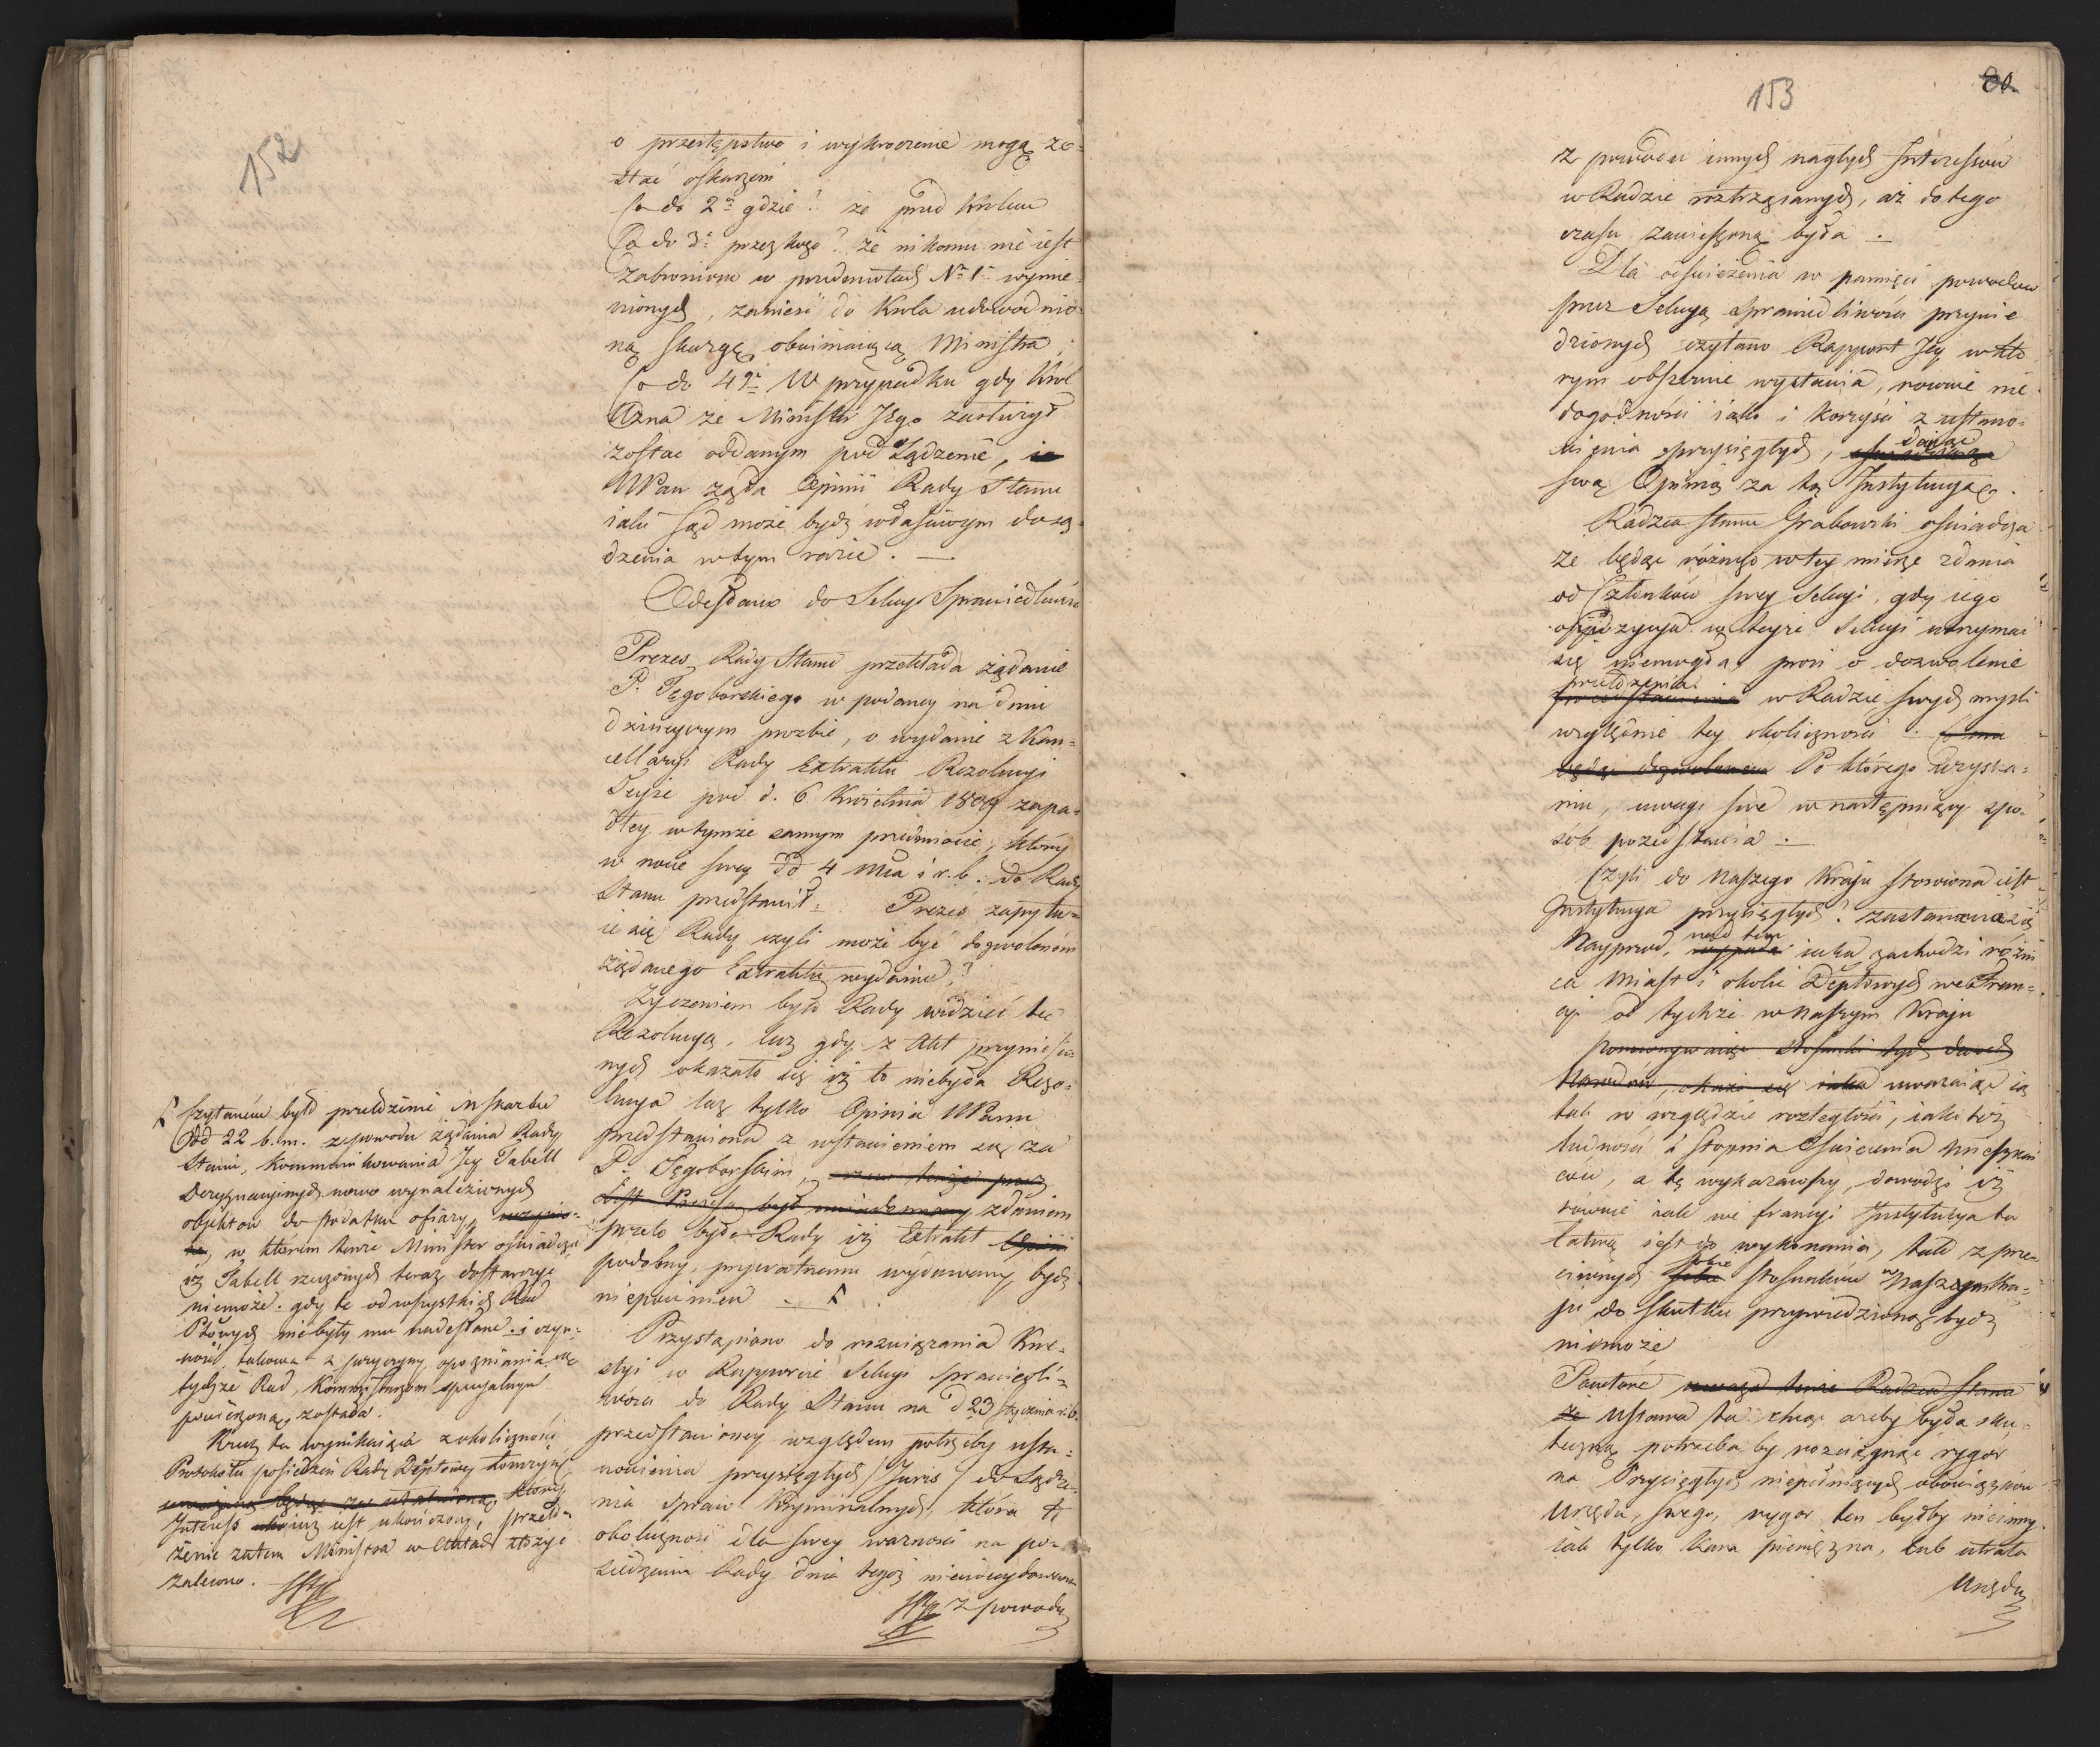 152
o przestępstwo i wykroczenie mogą zo-
stać oskarżeni
Co do 2º gdzie? że przed Królem
Co do 3º przez kogo? że nikomu nie iest
zabroniono w przedmiotach Nº 1º wymie-
nionych, zanieść do Króla udowodnio-
ną skargę obwiniaiącą Ministra
Co do 4º W przypadku gdy Król
uzna że Minister Jego zasłużył
zostać oddanym pod Sądzenie,
NPan żąda Opinii Rady Stanu
iaki Sąd może bydź właściwym do są-
dzenia w tym razie. —
Odesłano do Sekcyi Sprawiedliwości
Prezes Rady Stanu przekłada żądanie
P. Tęgoborskiego w podaney na dniu
dzisieyszym prozbie, o wydanie z Kan-
cellaryi Rady Extraktu Rezolucyi
Teyże pod d. 6 Kwietnia 1809 zapa-
dłey w tymże samym przedmiocie, który
w nocie swey dd 4 mca i r. b. do Rady
Stanu przedstawił. Prezes zapytu-
ie się Rady czyli może być dozwolonem
żądanego Extraktu wydanie?
Życzeniem było Rady widzieć tę
Rezolucyą, lecz gdy z Akt przyniesio-
nych okazało się iż to niebyła Rezo-
lucya lecz tylko Opinia NPanu
przedstawiona z wstawieniem się za
P. Tęgoborskim,
zdaniem
przeto było Rady iż Extrakt
podobny, prywatnemu wydawany bydź
niepowinien
Przystąpiono do rozwiązania Kwe-
styi w Rapporcie Sekcyi Sprawiedli-
wości do Rady Stanu na d 23 Stycznia r. b.
przedstawioney względem potrzeby usta-
nowienia przysięgłych (Juris) do Sądze-
nia Spraw Kryminalnych, która
okoliczność dla swey ważności na po-
siedzeniu Rady dnia tegoż
z powodu
Czytaném było przełożenie M Skarbu
dd 22 b. m. z powodu żądania Rady
Stanu, kommunikowania Jey Tabell
nowo wynalezionych
objektów do podatku ofiary,
w którém tenże Minister oświadcza
iż Tabell rzeczonych teraz dostarczyć
niemoże. gdy te od wszystkich Rad
Ptowych niebyły mu nadesłane. i czyn-
ność takowa z przyczyny opoźniania się
tychże Rad, Kommissarzom specyalnym
powierzoną została.
Rzecz ta wynikaiąca z okoliczności
Protokołu posiedzeń Rady Deptowey Łomżyńs.
któréy
Interess iuż iest ukończony, przeło-
żenie zatem Ministra w Aktach złożyć
zalecono.
153
80
z powodu innych nagłych Interessów
w Radzie roztrząsanych, aż do tego
czasu zawieszoną była. —
Dla odświeżenia w pamięci powodow
przez Sekcyą Sprawiedliwości przywie-
dzionych czytano Rapport Jey w któ-
rym obszernie wystawia, rownie nie-
dogodności iako i korzyści z ustano-
wienia przysięgłych, daiąc
swą Opinią za tą Instytucyą.
Radzca Stanu Grabowski oświadcza
że będąc różnego w tey mierze zdania
od Członków swey Sekcyi, gdy iego
oppozycya w teyże Sekcyi utrzymać
się niemogła, prosi o dozwolenie
przełożenia w Radzie, swych myśli
względnie tey okoliczności.
Po którego uzyska-
niu, uwagi swe w następuiący spo-
sób przedstawia. —
Czyli do Naszego Kraju stosowna iest
Instytucya przysięgłych? zastanawia się
Nayprzod, nad tym iaka zachodzi różni-
ca Miast i okolic Deptowych we Fran-
cyi od tychże w naszym Kraju
Porownywaiąc stosunki tych dwóch
Narodow, okaże się iaka uważaiąc ią
tak w względzie rozległości, iako też
ludności i stopnia Oświecenia Mieszkań-
ców, a tę wykazawszy, dowodzi iż
równie iak we Francyi Instytucya ta
łatwą iest do wykonania, tak z prze-
ciwnych sobie stosunków w Naszym Kra-
ju do skutku przywiedzioną bydź
niemoże
Powtóre uważa tenże Radzca Stanu
że Ustawa ta chcąc ażeby była sku-
teczną potrzeba by rozciągnąć rygor
na Przysięgłych niepełniących obowiązków
Urzędu swego, rygor ten byłby nieinny
iak tylko kara pieniężna, lub utrata
Urzędu